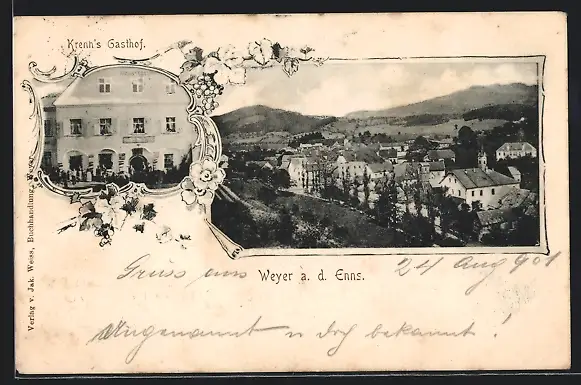 Krenn's Gasthof.
Gruss aus Weyer a. d. Enns. 24 Aug 901
Ungenannt u doch bekannt!
Verlag v. Jak. Weiss, Buchhandlung, Weyer.